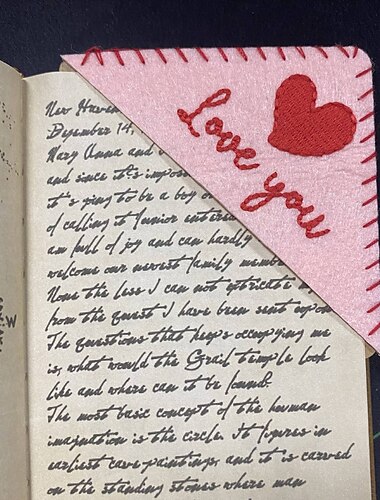 Love you
New Haven
December 14,
Mary Anna and
and since it's impos
it's going to be a boy
of calling it Junior entered
am full of joy and can hardly
welcome our newest family memb
None the less I can not extricate
from the quest I have been sent upon
The questions that keeps occupying me
is, what would the Grail temple look
like and where can it be found.
The most basic concept of the human
imagination is the circle. It figures in
earliest cave paintings, and it is carved
on the standing stones where man